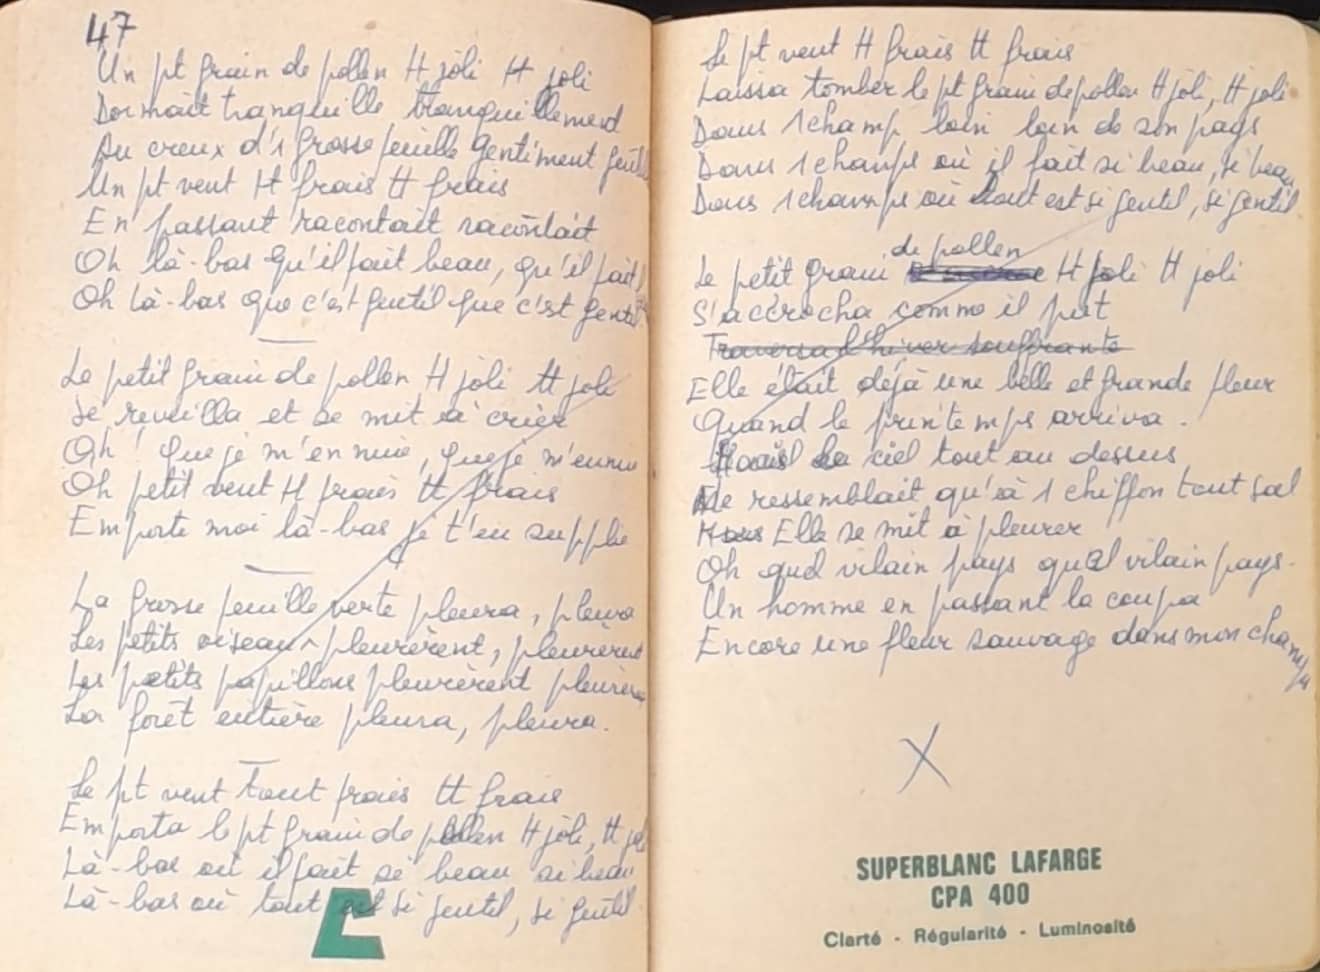 47
Un pt grain de pollen tt joli tt joli
Dormait tranquille tranquillement
Au creux d'1 grosse feuille gentiment gentil
Un pt vent tt frais tt frais
En passant racontait racontait
Oh là-bas qu'il fait beau, qu'il fait
Oh là-bas que c'est gentil que c'est gentil
Le petit grain de pollen tt joli tt joli
Se reveilla et se mit à crier
Oh ! que je m'ennuie, que je m'ennuie
Oh petit vent tt frais tt frais
Emporte moi là-bas je t'en supplie
La grosse feuille verte pleura, pleura
Les petits oiseaux pleurèrent, pleurèrent
Les petits papillons pleurèrent pleurèrent
La forêt entière pleura, pleura.
Le pt vent tout frais tt frais
Emporta le pt grain de pollen tt joli, tt joli
Là-bas où il fait si beau si beau
Là-bas où tout est si gentil, si gentil
Le pt vent tt frais tt frais
Laissa tomber le pt grain de pollen tt joli, tt joli
Dans 1 champ loin loin de son pays
Dans 1 champs où il fait si beau, si beau
Dans 1 champs où tout est si gentil, si gentil
de pollen
Le petit grain tt joli tt joli
S'accrocha comme il put
Traversa l'hiver souffrante
Elle était déjà une belle et grande fleur
Quand le printemps arriva.
Mais le ciel tout au dessus
Ne ressemblait qu'à 1 chiffon tout sal
Elle se mit à pleurer
Oh quel vilain pays quel vilain pays.
Un homme en passant la coupa
Encore une fleur sauvage dans mon champ
X
SUPERBLANC LAFARGE
CPA 400
Clarté - Régularité - Luminosité